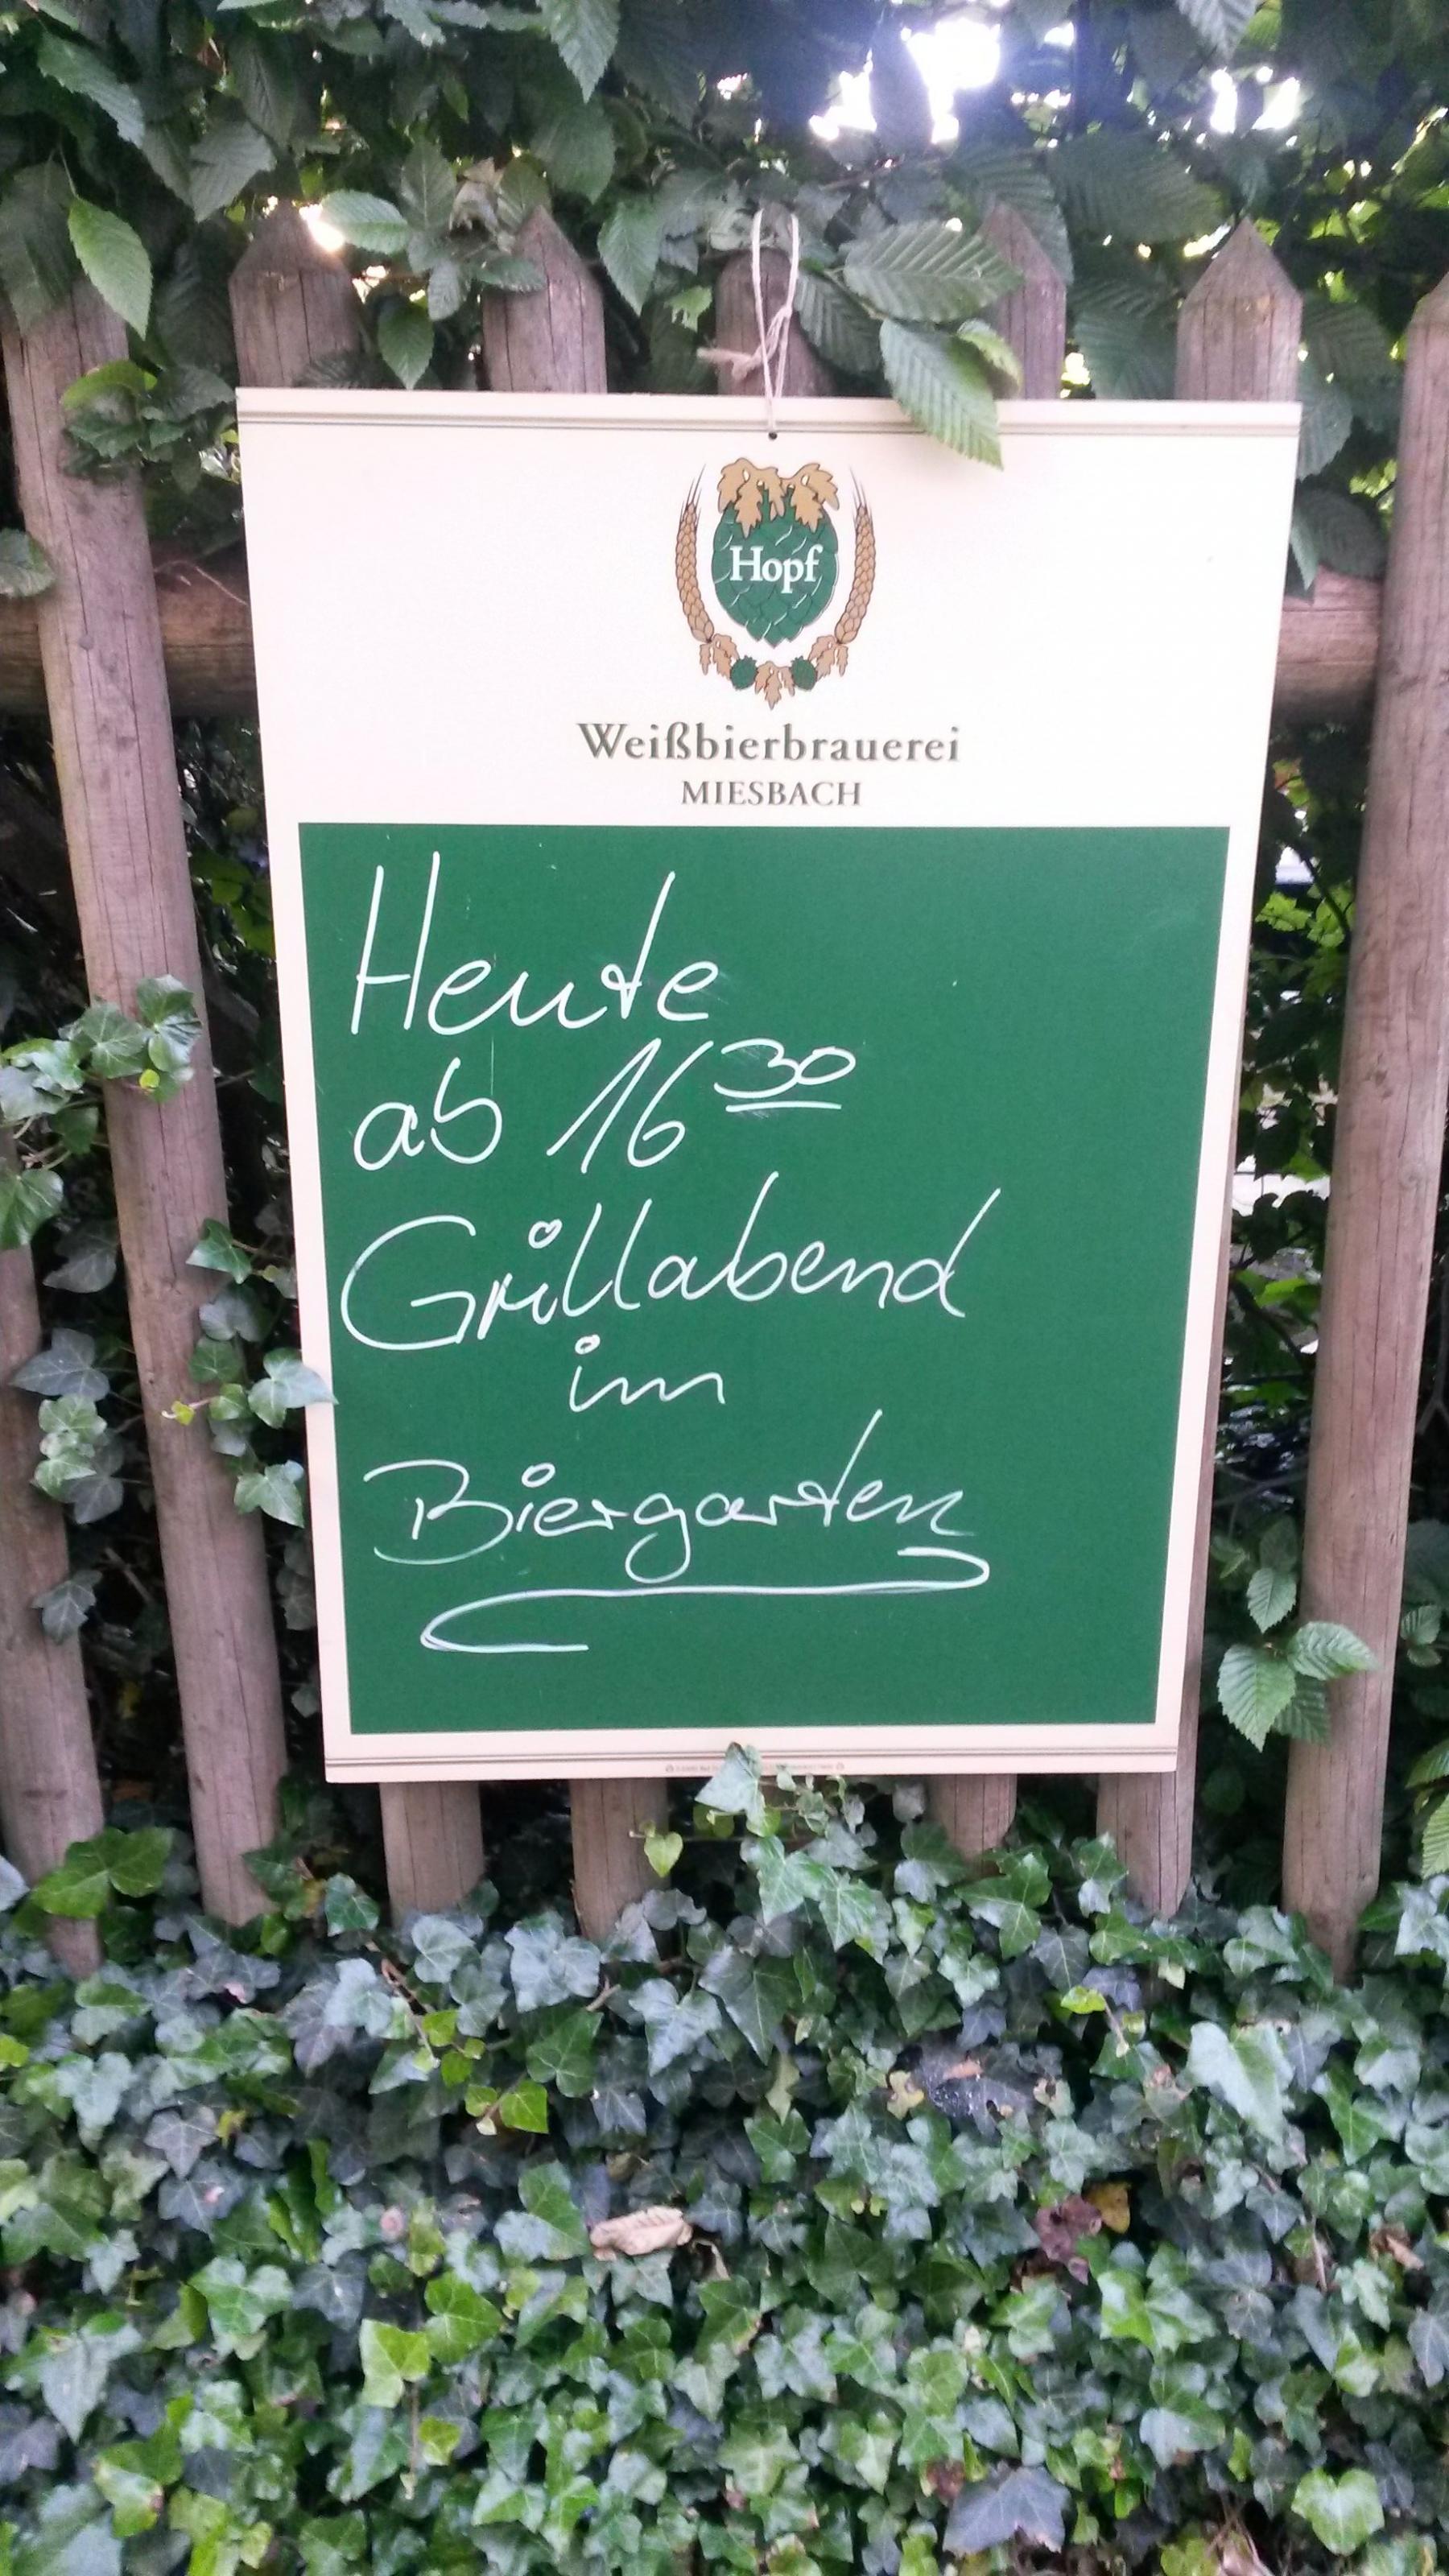 Hopf
Weißbierbrauerei
MIESBACH
Heute
ab 16 30
Grillabend
im
Biergarten